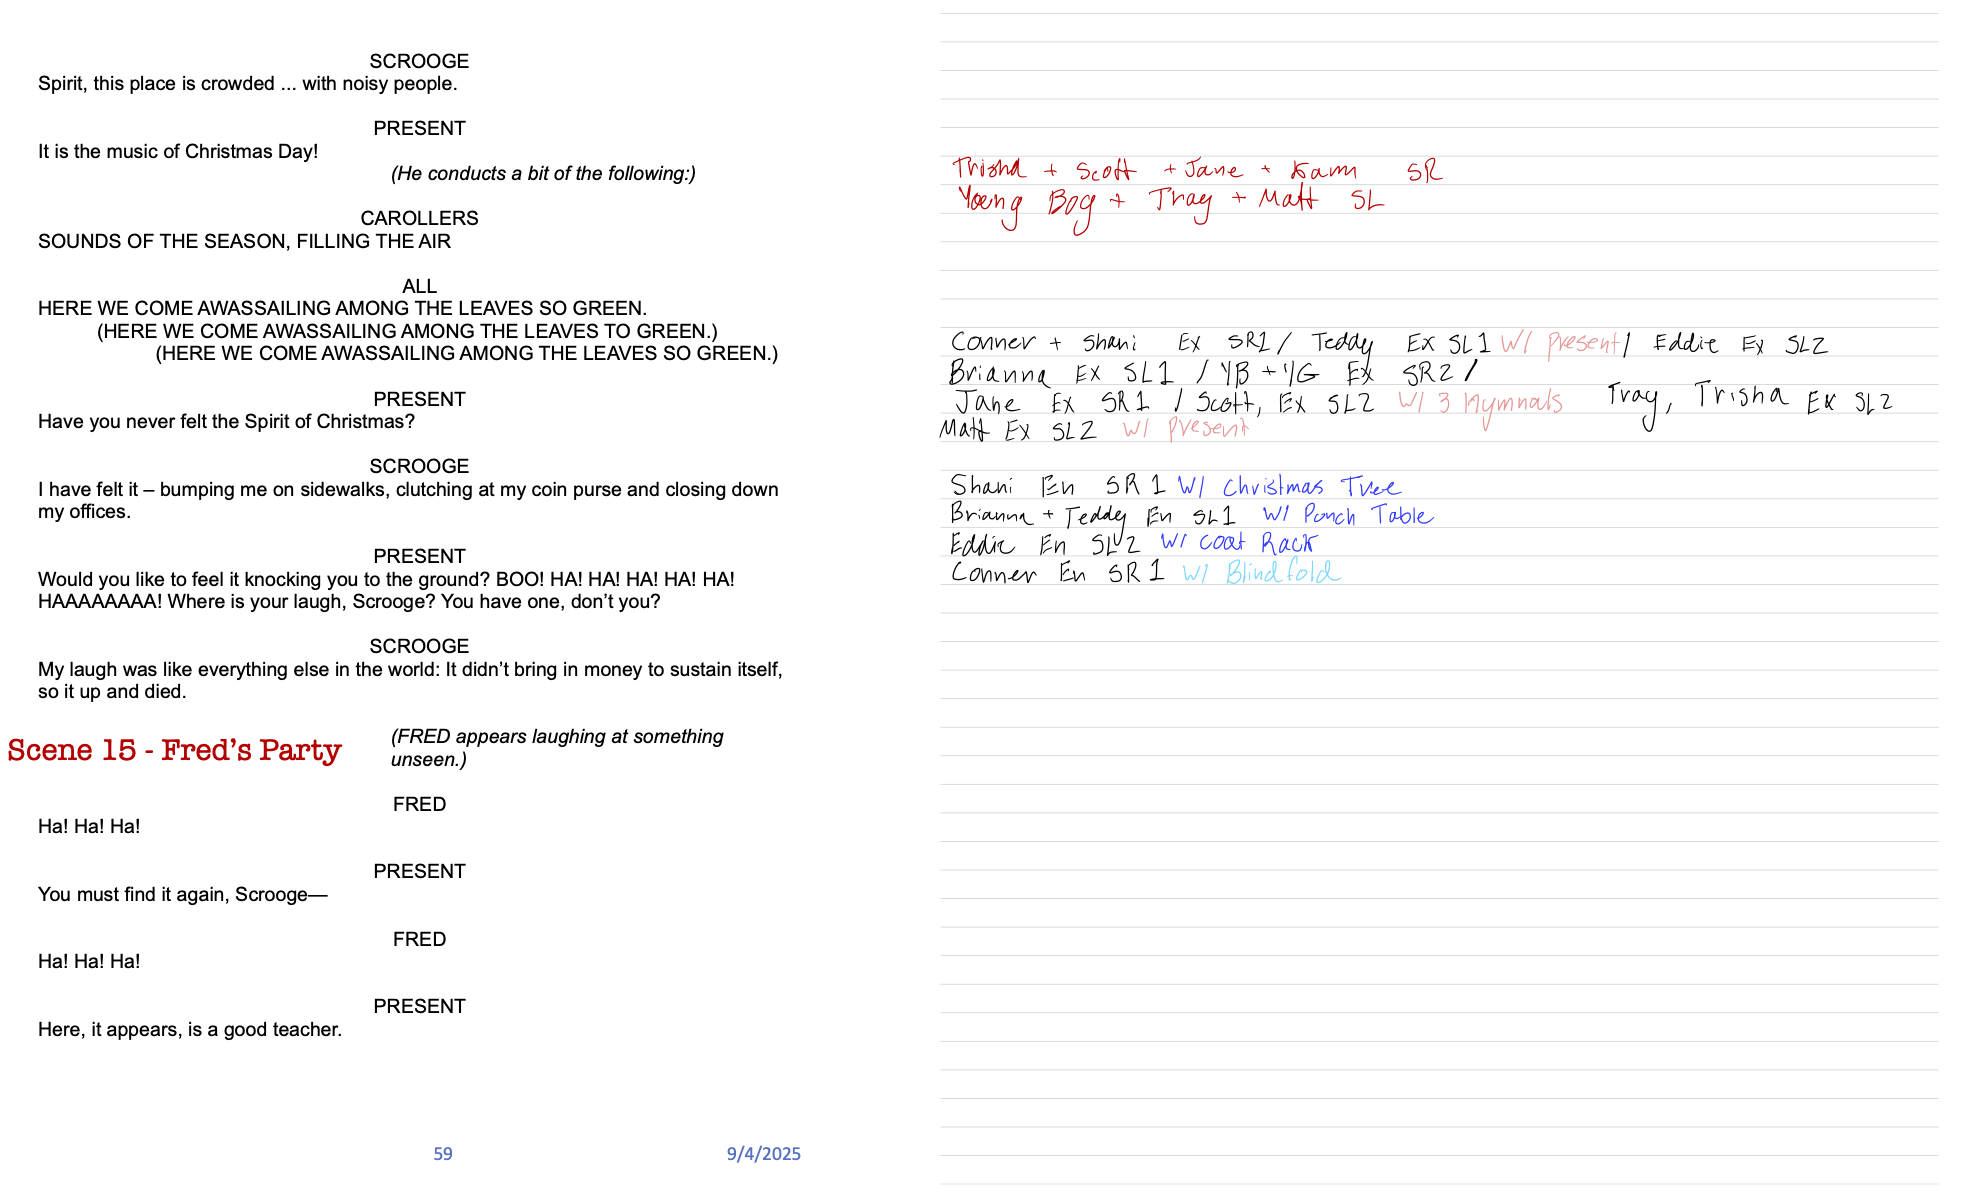 SCROOGE
Spirit, this place is crowded ... with noisy people.
PRESENT
It is the music of Christmas Day!
(He conducts a bit of the following:)
CAROLLERS
SOUNDS OF THE SEASON, FILLING THE AIR
ALL
HERE WE COME AWASSAILING AMONG THE LEAVES SO GREEN.
(HERE WE COME AWASSAILING AMONG THE LEAVES TO GREEN.)
(HERE WE COME AWASSAILING AMONG THE LEAVES SO GREEN.)
PRESENT
Have you never felt the Spirit of Christmas?
SCROOGE
I have felt it – bumping me on sidewalks, clutching at my coin purse and closing down
my offices.
PRESENT
Would you like to feel it knocking you to the ground? BOO! HA! HA! HA! HA! HA!
HAAAAAAAA! Where is your laugh, Scrooge? You have one, don’t you?
SCROOGE
My laugh was like everything else in the world: It didn’t bring in money to sustain itself,
so it up and died.
Scene 15 - Fred’s Party
(FRED appears laughing at something
unseen.)
FRED
Ha! Ha! Ha!
PRESENT
You must find it again, Scrooge—
FRED
Ha! Ha! Ha!
PRESENT
Here, it appears, is a good teacher.
59 9/4/2025
Trisha + Scott + Jane + SR
Young Boy + Tray + Matt SL
Conner + Shani Ex SR1 / Teddy Ex SL1 w/ Present / Eddie Ex SL2
Brianna Ex SL1 / YB + YG Ex SR2 /
Jane Ex SR1 / Scott, Ex SL2 w/ 3 Hymnals Tray, Trisha Ex SL2
Matt Ex SL2 w/ Present
Shani En SR1 w/ Christmas Tree
Brianna + Teddy En SL1 w/ Punch Table
Eddie En SL2 w/ Coat Rack
Conner En SR1 w/ Blindfold